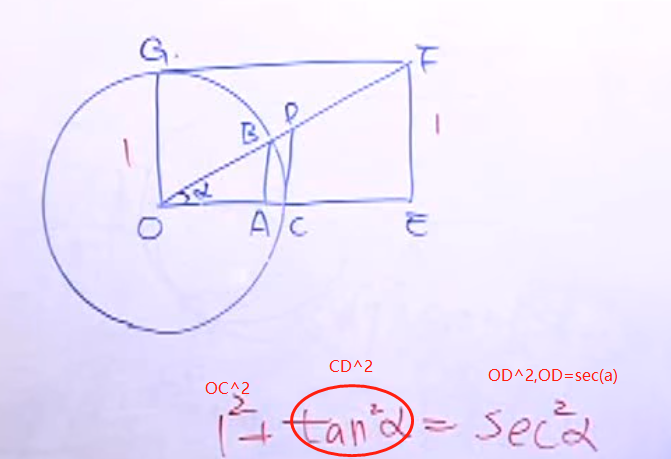 G.
F
D
B
1
1
α
O
A
C
E
CD^2
OC^2
OD^2,OD=sec(a)
1²+tan²α=sec²α